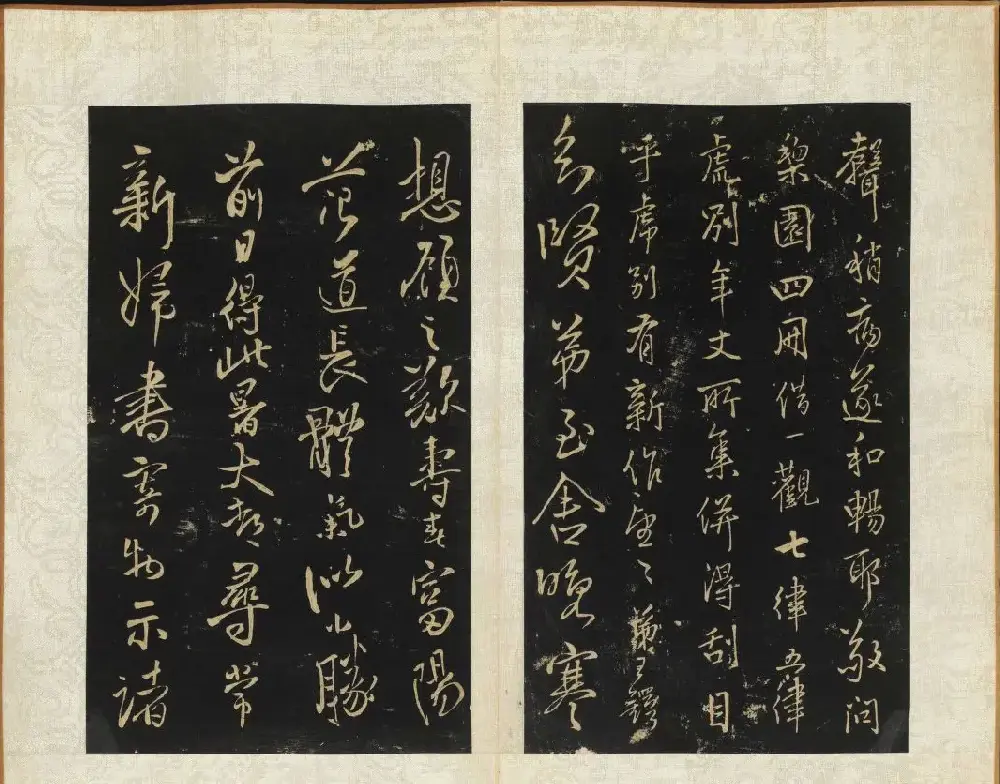 聲稍病遂和暢耶敬問
梨園四冊借一觀七律五律
處別年丈所集併得刮目
乎處別有新作望之弟王鐸
賢弟至舍晚寒
想顧之歎壽春富陽
道長體氣似小勝
前日得此暑大都尋常
新婦書寄物示諸